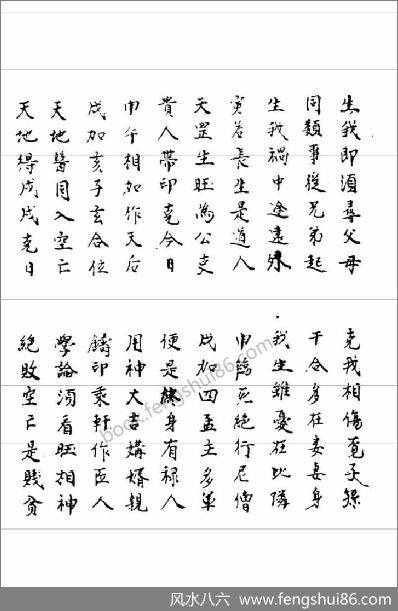 生我即須尋父母
同類事從兄弟起
生我禍中途遠外
寅為長生是道人
天罡生旺為公吏
貴人帶印克今日
巾午相加作天后
戌加亥子玄合位
天地醫同入空亡
天地得戌戌克日
克我相傷覓子孫
干合多在妻妾身
我生雖憂在比隣
申臨死絕行尼僧
戌加四孟主多軍
便是身有祿人
用神大吉媾婚親
鑄印乘軒作臣人
學論須看旺相神
絕敗空亡是賤貧
book.fengshui86.com
风水八六 - www.fengshui86.com